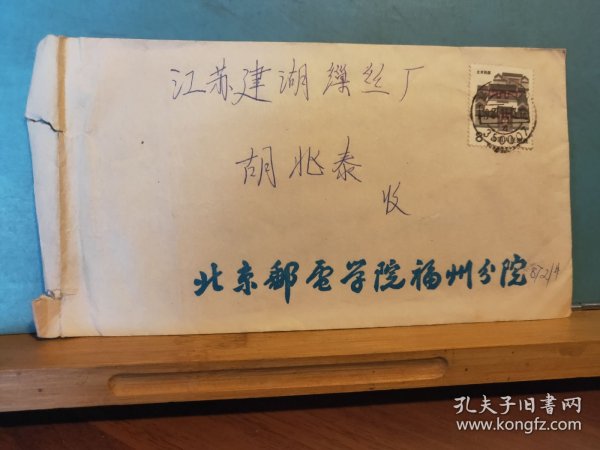 江苏建湖缫丝厂
胡兆泰
收
北京邮电学院福州分院
北京民居
8
孔夫子旧书网
www.kongfz.com